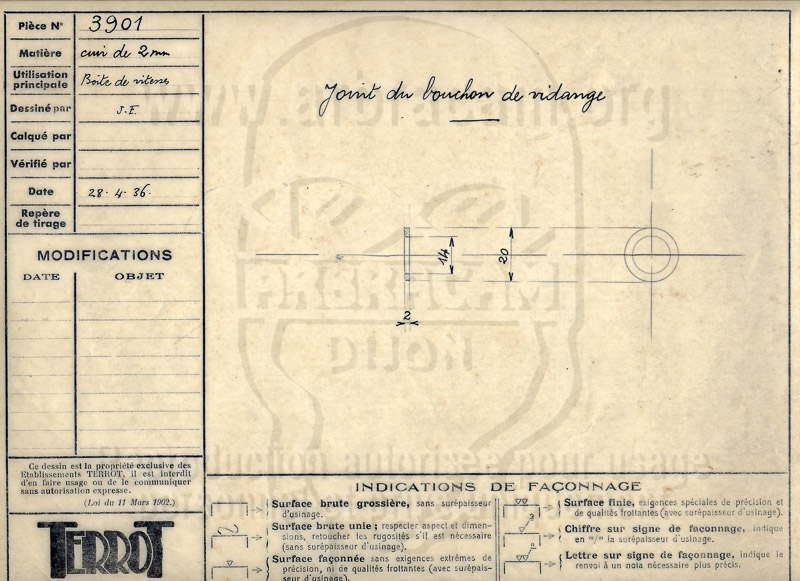 Pièce N° 3901
Matière cuir de 2 mm
Utilisation principale Boîte de vitesses
Dessiné par J.E.
Calqué par
Vérifié par
Date 28.4.36.
Repère de tirage
MODIFICATIONS
DATE OBJET
Joint du bouchon de vidange
14
20
2
ARBRACAM
DIJON
Ce dessin est la propriété exclusive des
Etablissements TERROT, il est interdit
d'en faire usage ou de le communiquer
sans autorisation expresse.
(Loi du 11 Mars 1902.)
TERROT
INDICATIONS DE FAÇONNAGE
Surface brute grossière, sans surépaisseur
d'usinage.
Surface brute unie ; respecter aspect et dimen-
sions, retoucher les rugosités s'il est nécessaire
(sans surépaisseur d'usinage).
Surface façonnée sans exigences extrêmes de
précision, ni de qualités frottantes (avec surépais-
seur d'usinage).
Surface finie, exigences spéciales de précision et
de qualités frottantes (avec surépaisseur d'usinage).
Chiffre sur signe de façonnage, indique
en m/m la surépaisseur d'usinage.
Lettre sur signe de façonnage, indique le
renvoi à un nota nécessaire plus précis.